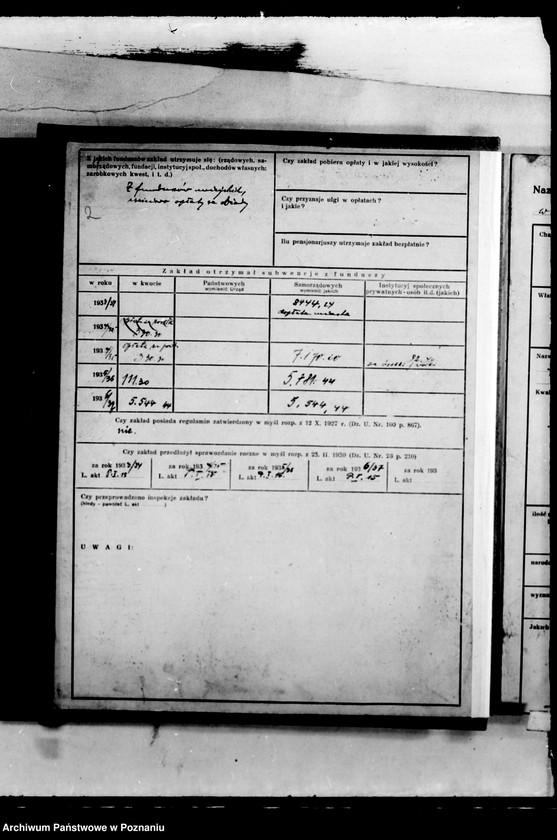 Z jakich funduszów zakład utrzymuje się: (rządowych, sa-
morządowych, fundacji, instytucyj społ., dochodów własnych:
zarobkowych kwest, i t. d.)
Z funduszów miejskich,
2
Czy zakład pobiera opłaty i w jakiej wysokości?
Czy przyznaje ulgi w opłatach?
i jakie?
Ilu pensjonarjuszy utrzymuje zakład bezpłatnie?
Zakład otrzymał subwencje z funduszy
w roku
w kwocie
Państwowych
wymienić: Urząd
Samorządowych
wymienić jakich
Instytucyj społecznych
prywatnych - osób it.d. (jakich)
1933/34
8444,24
193
193
7.170.10
1935/36
111.30
5.781.44
1936/37
5.544 44
5.544,44
Czy zakład posiada regulamin zatwierdzony w myśl rozp. z 12 X. 1927 r. (Dz. U. Nr. 100 p. 867).
nie.
Czy zakład przedłożył sprawozdanie roczne w myśl rozp. z 23. II. 1930 (Dz. U. Nr. 20 p. 220)
za rok 1933/34
za rok 193
za rok 1935/36
za rok 1936/37
za rok 193
L. akt
L. akt
L. akt
L. akt
L. akt
Czy przeprowadzono inspekcje zakładu?
(kiedy - powołać L. akt)
UWAGI:
Naz
Cha
Wła
Narz
Kwal
ilość
narod
wyzna
Jakich
Archiwum Państwowe w Poznaniu